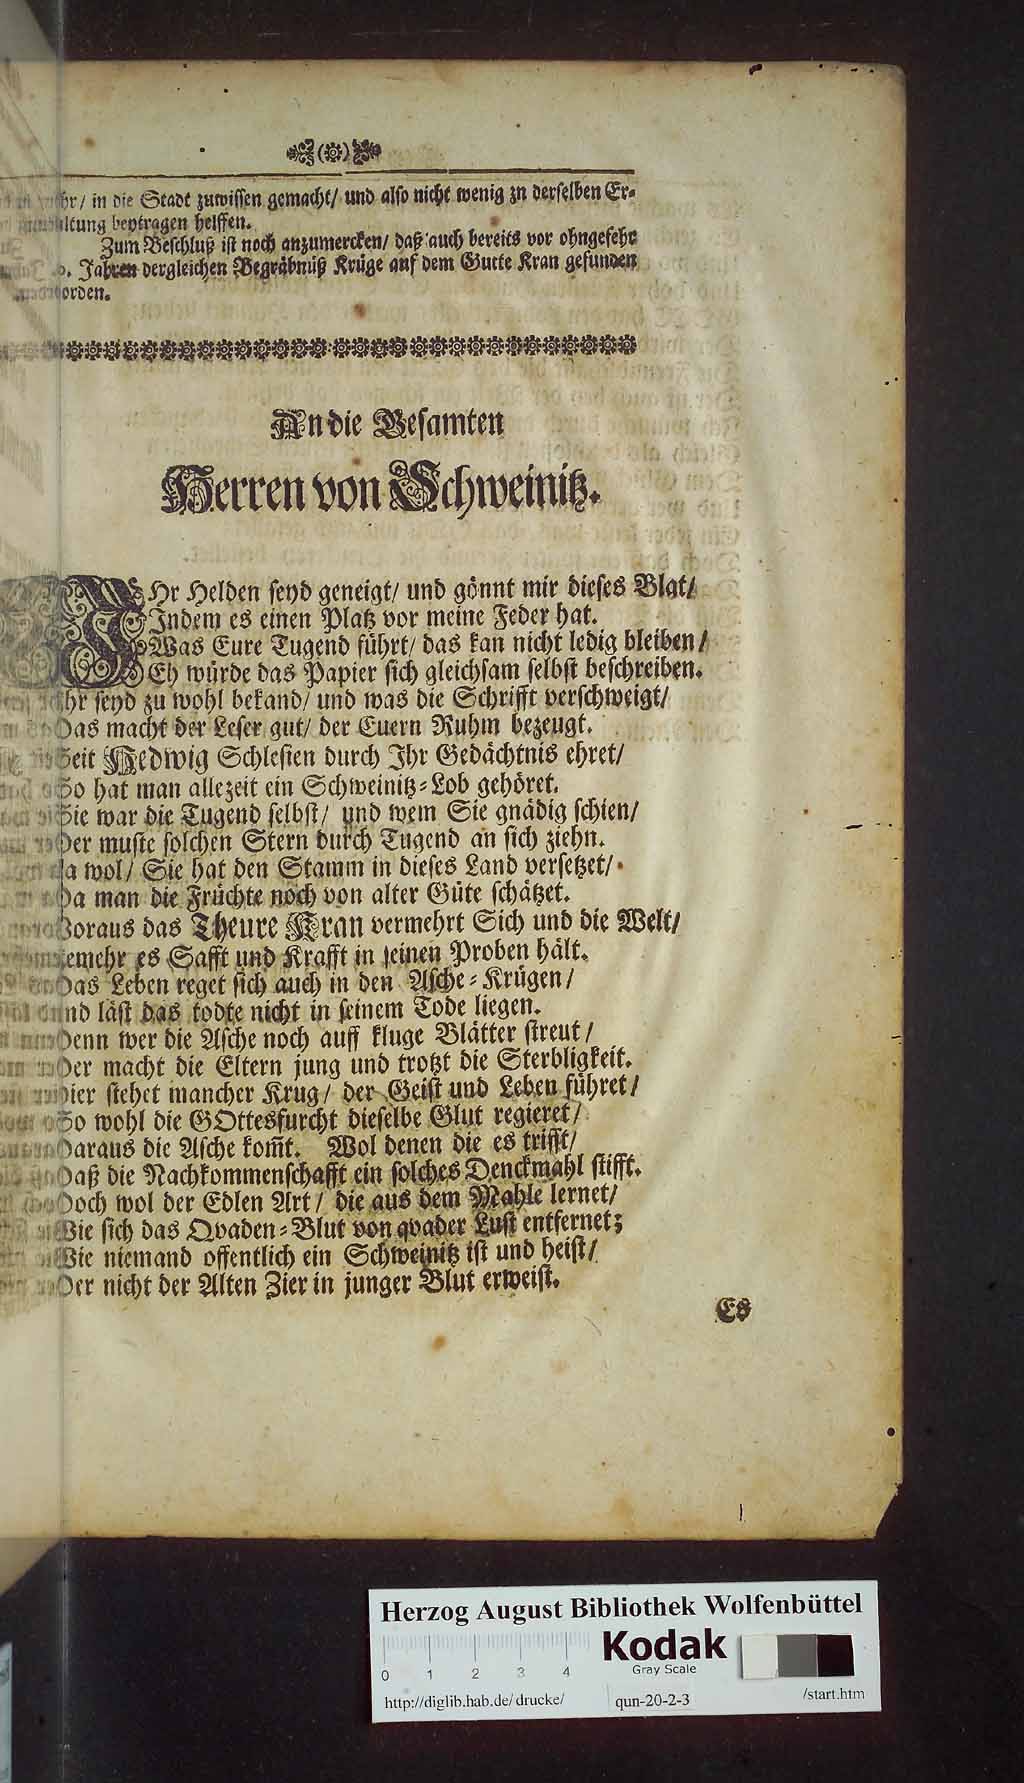 hr/ in die Stadt zuwissen gemacht/ und also nicht wenig zn derselben Er-
ltung beytragen helffen.
Zum Beschluß ist noch anzumercken/ daß auch bereits vor ohngefehr
Jahren dergleichen Begräbnüß Krüge auf dem Gutte Kran gefunden
orden.
An die Gesamten
Herren von Schweinitz.
IHr Helden seyd geneigt/ und gönnt mir dieses Blat/
Indem es einen Platz vor meine Feder hat.
Was Eure Tugend führt/ das kan nicht ledig bleiben/
Eh würde das Papier sich gleichsam selbst beschreiben.
hr seyd zu wohl bekand/ und was die Schrifft verschweigt/
Das macht der Leser gut/ der Euern Ruhm bezeugt.
Seit Hedwig Schlesien durch Ihr Gedächtnis ehret/
So hat man allezeit ein Schweinitz-Lob gehöret.
Sie war die Tugend selbst/ und wem Sie gnädig schien/
Der muste solchen Stern durch Tugend an sich ziehn.
Ja wol/ Sie hat den Stamm in dieses Land versetzet/
Da man die Früchte noch von alter Güte schätzet.
Woraus das Theure Kran vermehrt Sich und die Welt/
emehr es Safft und Krafft in seinen Proben hält.
Das Leben reget sich auch in den Asche-Krügen/
nd läst das todte nicht in seinem Tode liegen.
Denn wer die Asche noch auff kluge Blätter streut/
Der macht die Eltern jung und trotzt die Sterbligkeit.
Hier stehet mancher Krug/ der Geist und Leben führet/
So wohl die GOttesfurcht dieselbe Glut regieret/
Daraus die Asche kom̄t. Wol denen die es trifft/
Daß die Nachkommenschafft ein solches Denckmahl stifft.
Doch wol der Edlen Art/ die aus dem Mahle lernet/
Wie sich das Qvaden-Blut von qvader Lust entfernet;
Wie niemand offentlich ein Schweinitz ist und heist/
Der nicht der Alten Zier in junger Blut erweist.
Es
Herzog August Bibliothek Wolfenbüttel
Kodak
Gray Scale
0 1 2 3 4
http://diglib.hab.de/drucke/ qun-20-2-3 /start.htm